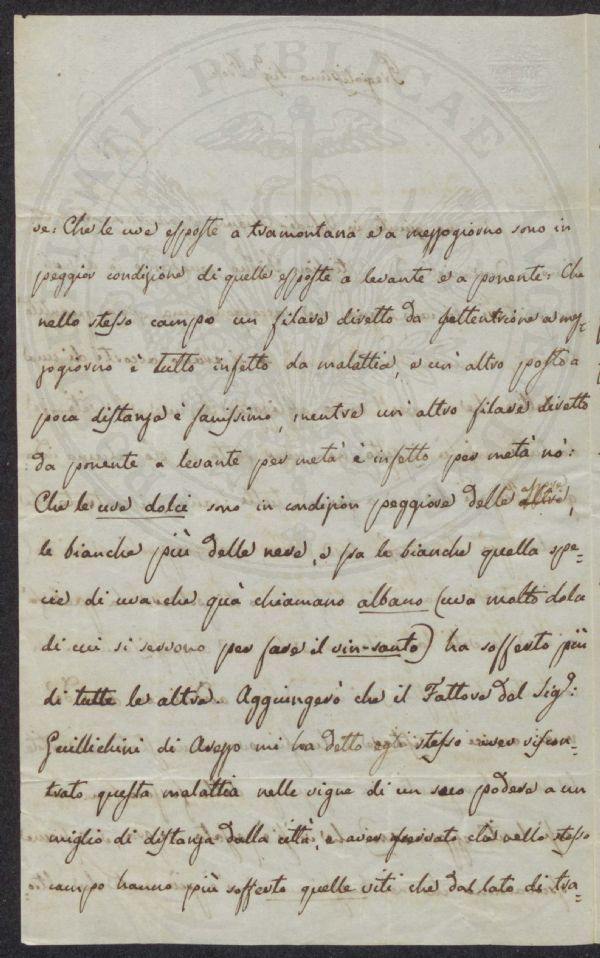 re: Che le uve esposte a tramontana e a mezzogiorno sono in
peggior condizione di quelle esposte a levante e a ponente: Che
nello stesso campo un filare diretto da settentrione a mez=
zogiorno è tutto infetto da malattia, e un' altro posto a
poca distanza è sanissimo, mentre un' altro filare diretto
da ponente a levante per metà è infetto per metà nò:
Che le uve dolci sono in condizion peggiore delle altre,
le bianche più delle nere, e fra le bianche quella spe=
cie di uva che quà chiamano albano (uva molto dolce
di cui si servono per fare il vin-santo) ha sofferto più
di tutte le altre. Aggiungerò che il Fattore del Sigr:
Guillichini di Arezzo mi ha detto egli stesso aver riscon=
trato questa malattia nelle vigne di un suo podere a un
miglio di distanza dalla città, e aver osservato che nello stesso
campo hanno più sofferto quelle viti che dal lato di tra=